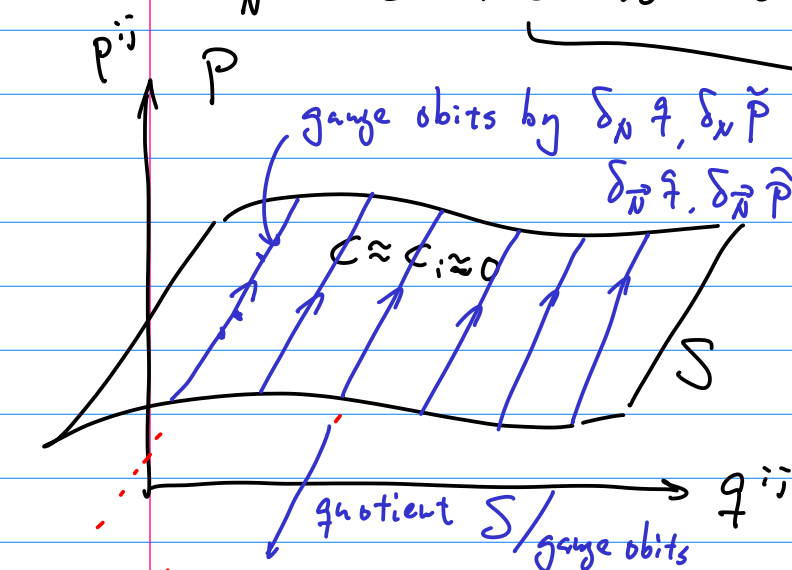 N
p^{ij} P
gauge obits by δ_N q, δ_N p̃
δ_{\vec{N}} q, δ_{\vec{N}} p̃
C ≈ C_i ≈ 0
S
q^{ij}
quotient S/gauge obits